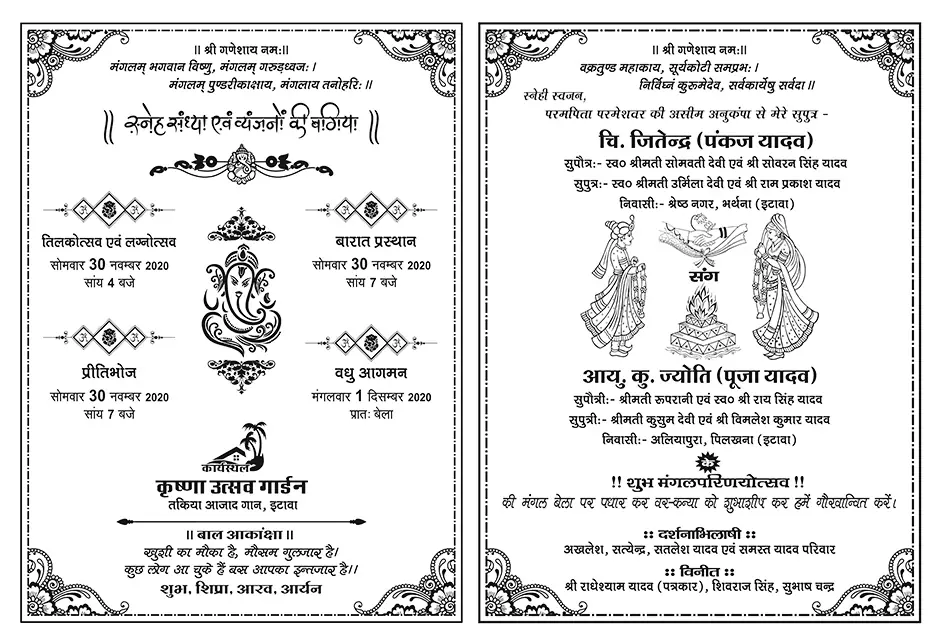 ॥ श्री गणेशाय नमः॥
मंगलम् भगवान विष्णु, मंगलम् गरुड़ध्वजः।
मंगलम् पुण्डरीकाक्षाय, मंगलाय तनोहरिः।
॥ स्नेह संध्या एवं व्यंजनों की बगिया ॥
तिलकोत्सव एवं लग्नोत्सव
सोमवार 30 नवम्बर 2020
सांय 4 बजे
बारात प्रस्थान
सोमवार 30 नवम्बर 2020
सांय 7 बजे
प्रीतिभोज
सोमवार 30 नवम्बर 2020
सांय 7 बजे
वधु आगमन
मंगलवार 1 दिसम्बर 2020
प्रातः बेला
कार्यस्थल
कृष्णा उत्सव गार्डन
तकिया आजाद गान, इटावा
॥ बाल आकांक्षा ॥
खुशी का मौका है, मौसम गुलजार है।
कुछ लोग आ चुके हैं बस आपका इन्तजार है।।
शुभ, शिप्रा, आरव, आर्यन
॥ श्री गणेशाय नमः॥
वक्रतुण्ड महाकाय, सूर्यकोटी समप्रभः।
निर्विघ्नं कुरूमेदेव, सर्वकार्येषु सर्वदा।।
स्नेही स्वजन,
परमपिता परमेशवर की असीम अनुकंपा से मेरे सुपुत्र -
चि. जितेन्द्र (पंकज यादव)
सुपौत्रः- स्व० श्रीमती सोमवती देवी एवं श्री सोवरन सिंह यादव
सुपुत्रः- स्व० श्रीमती उर्मिला देवी एवं श्री राम प्रकाश यादव
निवासीः- श्रेष्ठ नगर, भर्थना (इटावा)
संग
आयु. कु. ज्योति (पूजा यादव)
सुपौत्रीः- श्रीमती रूपरानी एवं स्व० श्री राय सिंह यादव
सुपुत्रीः- श्रीमती कुसुम देवी एवं श्री विमलेश कुमार यादव
निवासीः- अलियापुरा, पिलखना (इटावा)
के
!! शुभ मंगलपरिणयोत्सव !!
की मंगल बेला पर पधार कर वर-कन्या को शुभाशीष कर हमें गौरवान्वित करें।
:: दर्शनाभिलाषी ::
अखलेश, सत्येन्द्र, सतलेश यादव एवं समस्त यादव परिवार
:: विनीत ::
श्री राधेश्याम यादव (पत्रकार), शिवराज सिंह, सुभाष चन्द्र